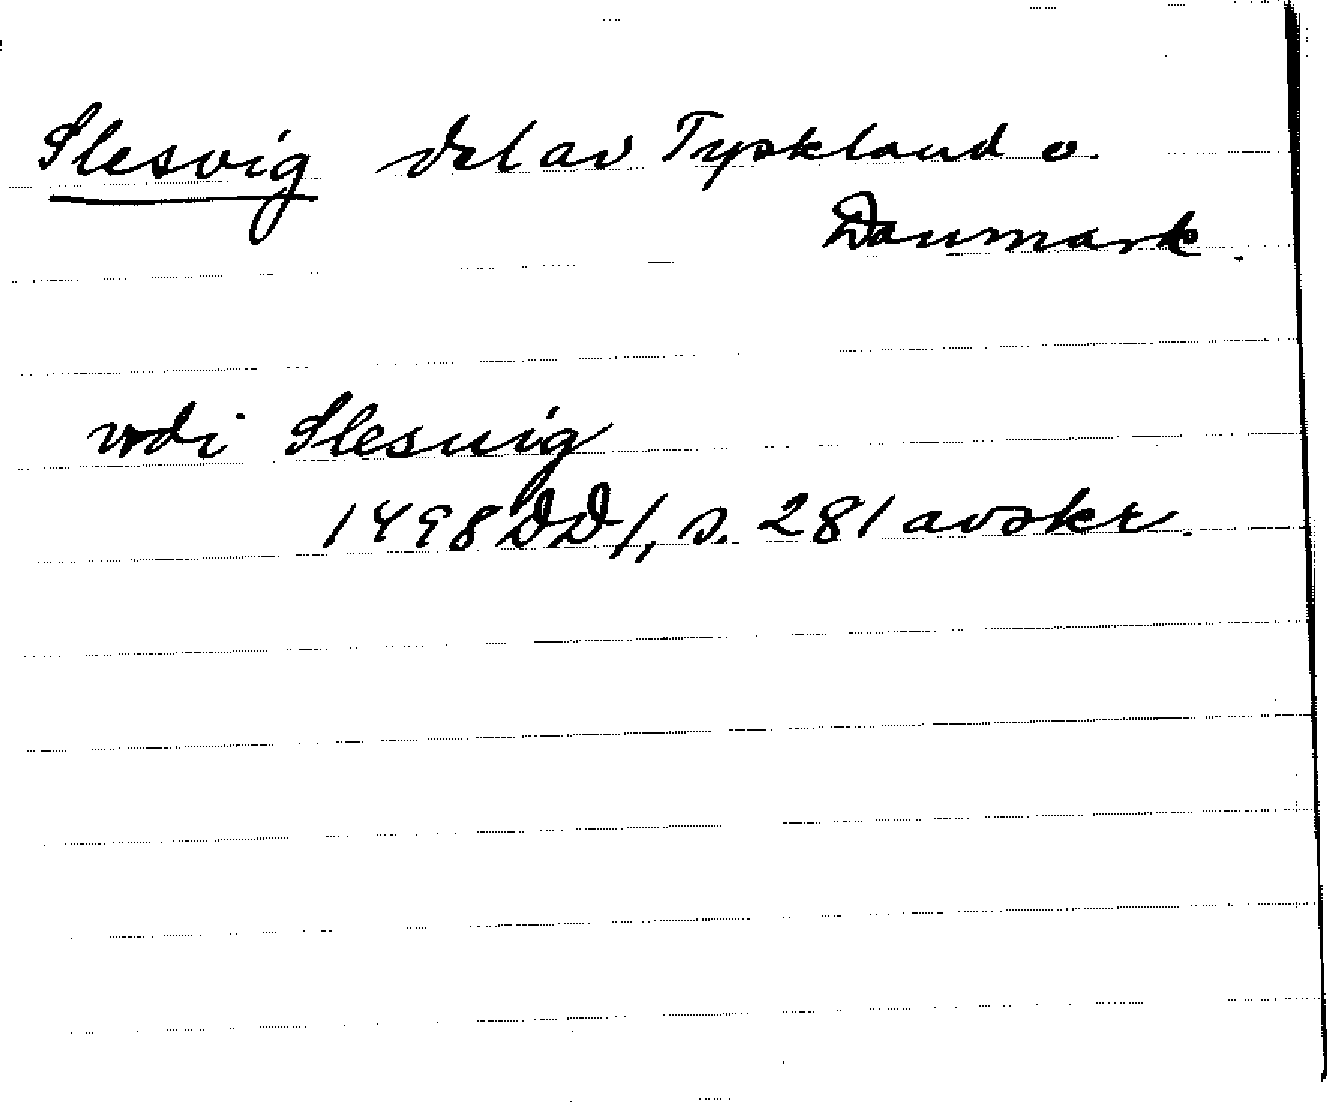 Slesvig del av Tyskland o.
Danmark.
vdi Slesuig
1498 DD 1, s. 281 avskr.